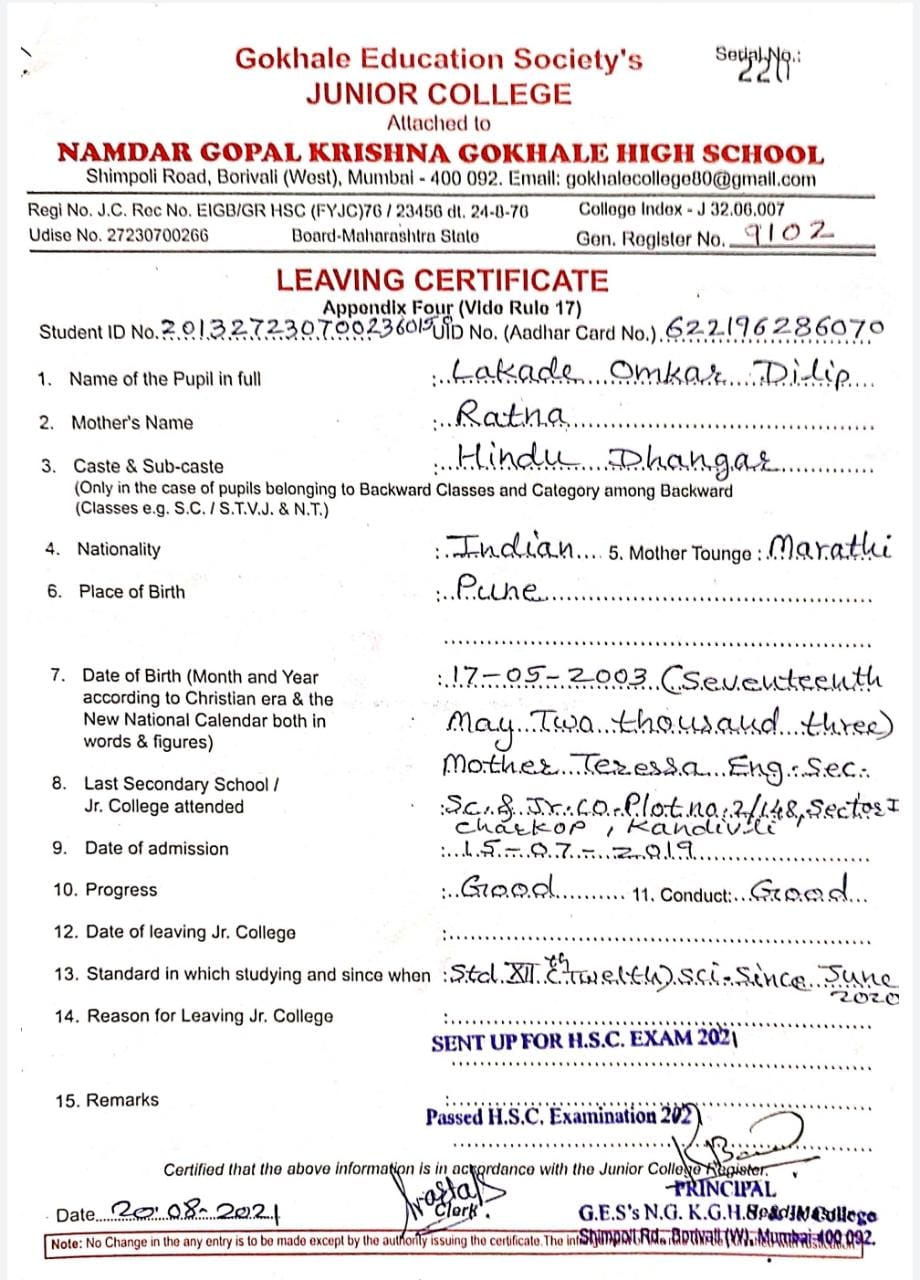 Serial No.: 220
Gokhale Education Society's
JUNIOR COLLEGE
Attached to
NAMDAR GOPAL KRISHNA GOKHALE HIGH SCHOOL
Shimpoli Road, Borivali (West), Mumbai - 400 092. Email: gokhalecollege80@gmail.com
Regi No. J.C. Rec No. EIGB/GR HSC (FYJC)76 / 23456 dt. 24-8-76 College Index - J 32.06.007
Udise No. 27230700266 Board-Maharashtra State Gen. Register No. 9102
LEAVING CERTIFICATE
Appendix Four (Vide Rule 17)
Student ID No. UID No. (Aadhar Card No.) 622196286070
1. Name of the Pupil in full : Lakade Omkar Dilip
2. Mother's Name : Ratna
3. Caste & Sub-caste : Hindu Dhangar
(Only in the case of pupils belonging to Backward Classes and Category among Backward
(Classes e.g. S.C. / S.T.V.J. & N.T.)
4. Nationality : Indian 5. Mother Tounge : Marathi
6. Place of Birth : Pune
7. Date of Birth (Month and Year : 17-05-2003 (Seventeenth
according to Christian era & the
New National Calendar both in May Two thousand three)
words & figures)
8. Last Secondary School / Mother Teressa Eng. Sec.
Jr. College attended : Sc. & Jr. co. Plot no. 2/148, Sector I
Charkop, Kandivli
9. Date of admission : 15-07-2019
10. Progress : Good 11. Conduct: Good
12. Date of leaving Jr. College :
13. Standard in which studying and since when : Std. XII th (Twelth) sci. Since June
2020
14. Reason for Leaving Jr. College :
SENT UP FOR H.S.C. EXAM 2021
15. Remarks :
Passed H.S.C. Examination 2021
Certified that the above information is in accordance with the Junior College Register.
PRINCIPAL
Clerk.
Date 20-08-2021 G.E.S's N.G. K.G.H.S. & Jr. College
Note: No Change in the any entry is to be made except by the authority issuing the certificate. The
Shimpoli Rd., Borivali (W), Mumbai-400 092.